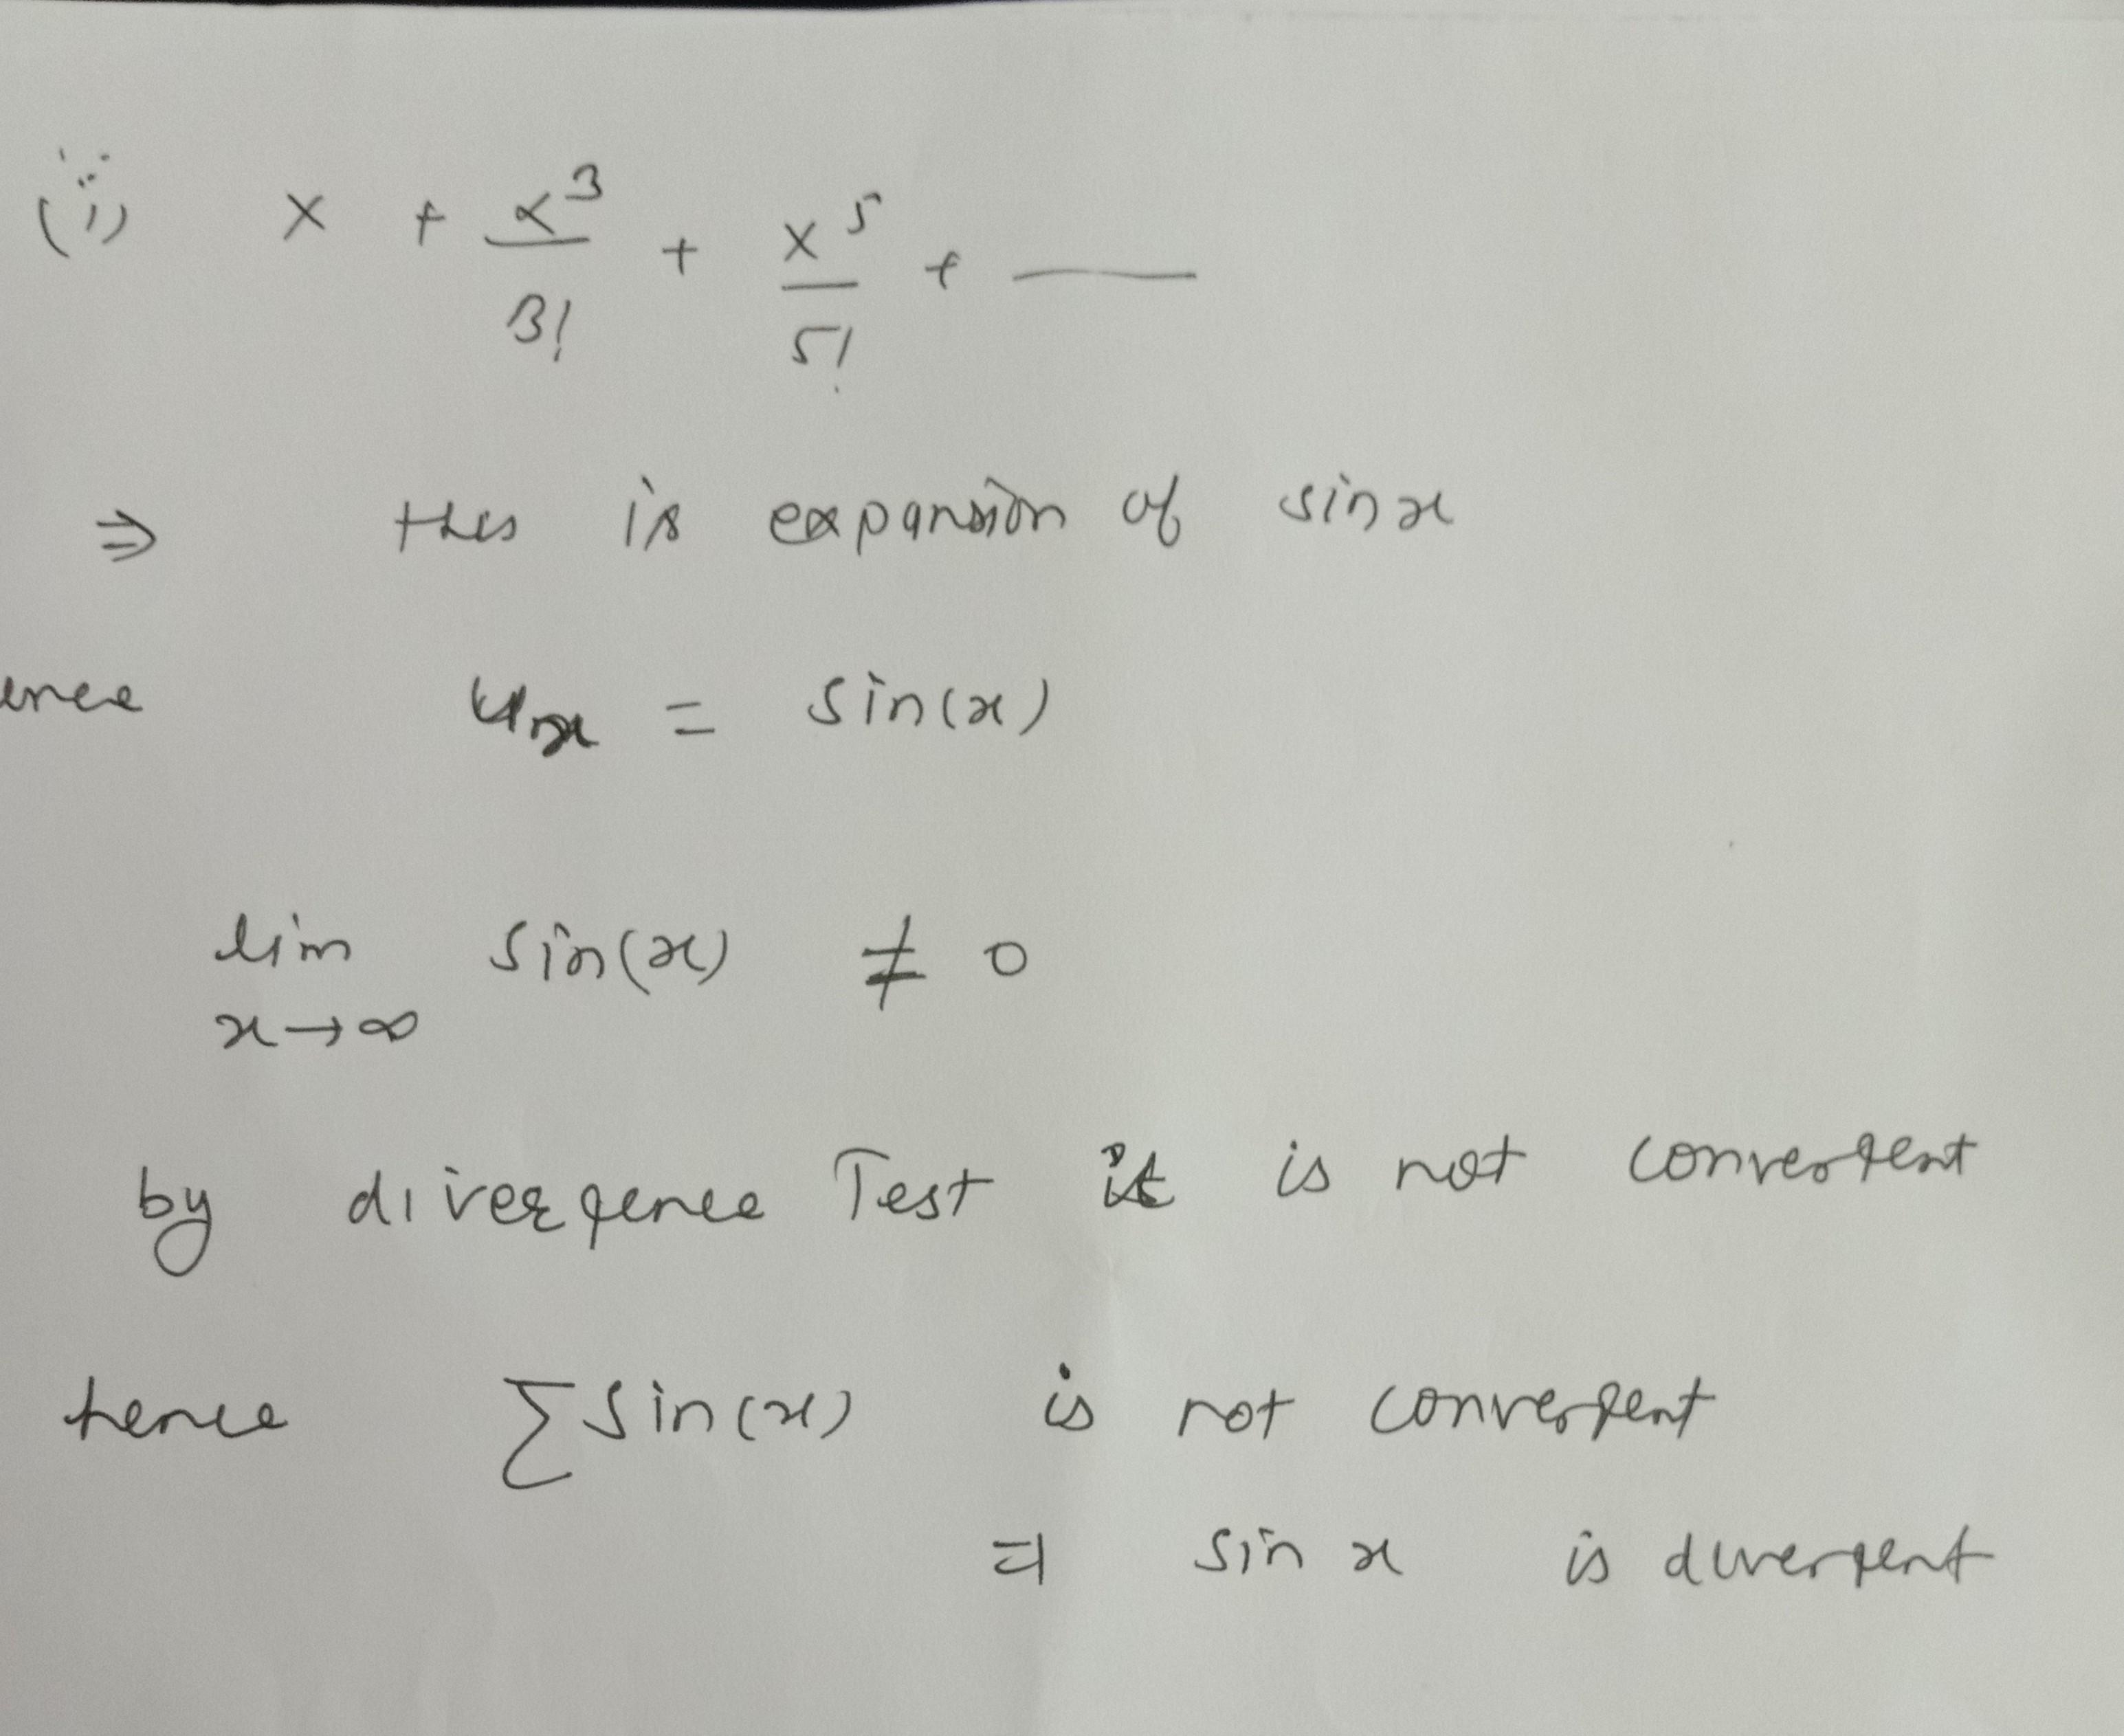 (ii) x + x³/3! + x⁵/5! + ——
⇒ this is expansion of sin x
ence uₙ = sin(x)
lim x→∞ sin(x) ≠ 0
by divergence Test it is not convergent
hence ∑ sin(x) is not convergent
⇒ sin x is divergent